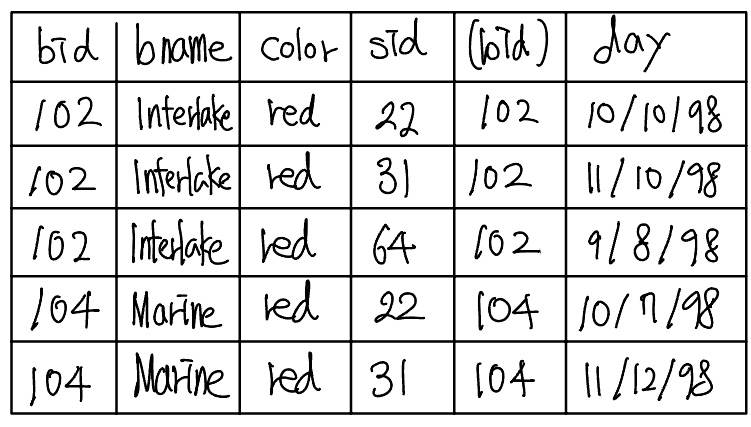 bid bname color sid (bid) day
102 Interlake red 22 102 10/10/98
102 Interlake red 31 102 11/10/98
102 Interlake red 64 102 9/8/98
104 Marine red 22 104 10/7/98
104 Marine red 31 104 11/12/98